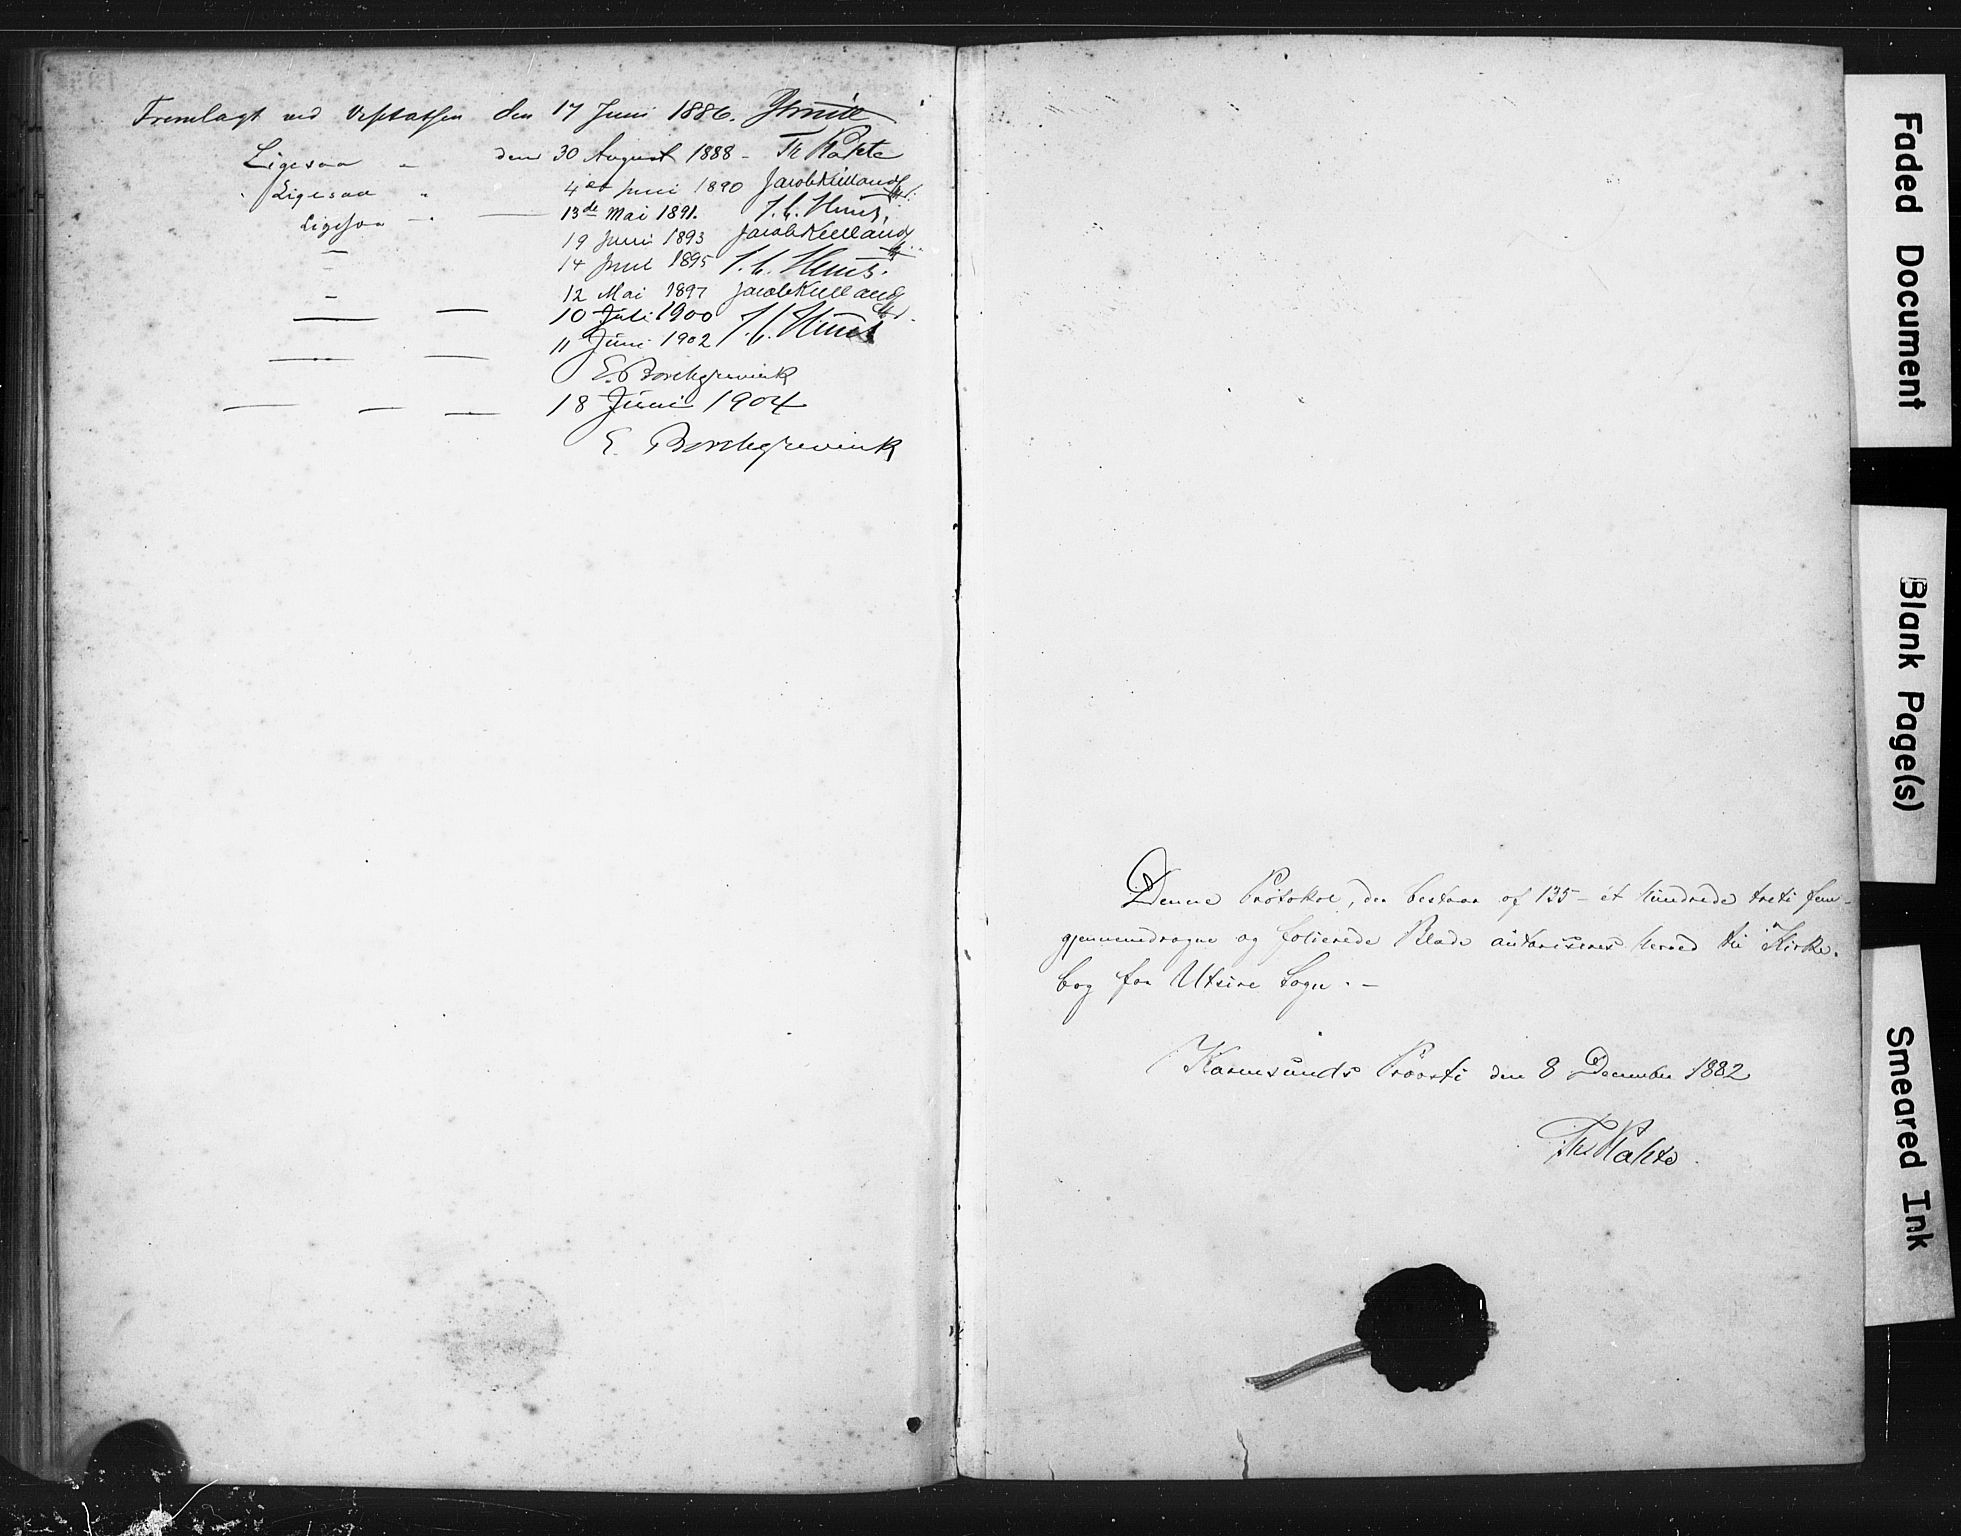 Fremlagt ved Visitatsen den 17 Juni 1886.
Ligesaa " den 30 August 1888 - Th Rakte
" Ligesaa " 4de Juni 1890 Jacob Kielland
Ligesaa - " 13de Mai 1891.
19 Juni 1893 Jacob Kielland
14 Juni 1895
12 Mai 1897 Jacob Kielland
10 Juli 1900
11 Juni 1902
E. Borchgrevink
18 Juni 1904
E. Borchgrevink
Denne Protokol, der bestaar af 135 - et hundrede treti fem -
gjennemdragne og folierede Blade autoriseres herved til Kirke-
bog for Utsire Sogn. -
Karmsunds Provsti den 8 December 1882
Th Rakte
Faded Document
Blank Page(s)
Smeared Ink